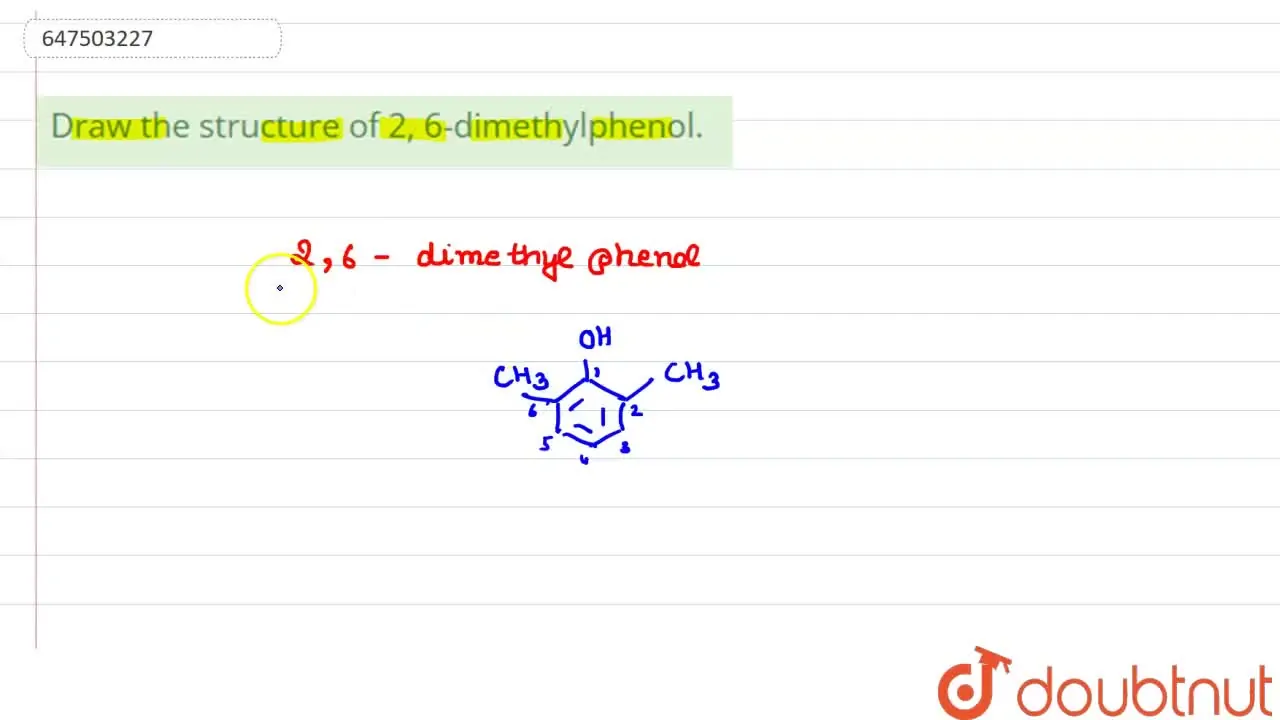 647503227
Draw the structure of 2, 6-dimethylphenol.
2,6 - dimethyl phenol
OH
CH3 CH3
1
6 2
5 3
4
doubtnut